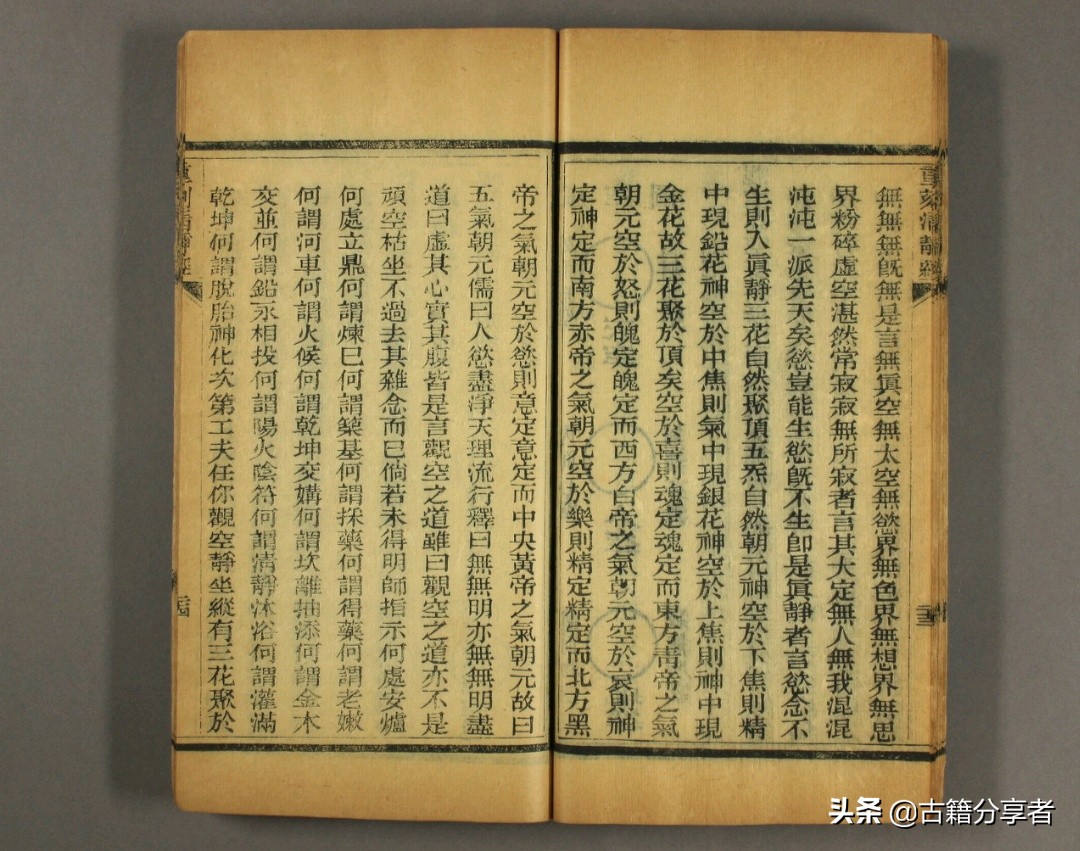 無無無旣無是言無眞空無太空無慾界無色界無想界無思
界粉碎虛空湛然常寂寂無所寂者言其大定無人無我混混
沌沌一派先天矣慾豈能生慾旣不生卽是眞靜者言慾念不
生則入眞靜三花自然聚頂五炁自然朝元神空於下焦則精
中現鉛花神空於中焦則氣中現銀花神空於上焦則神中現
金花故三花聚於頂矣空於喜則魂定魂定而東方靑帝之氣
朝元空於怒則魄定魄定而西方白帝之氣朝元空於哀則神
定神定而南方赤帝之氣朝元空於樂則精定精定而北方黑
帝之氣朝元空於慾則意定意定而中央黃帝之氣朝元故曰
五氣朝元儒曰人慾盡凈天理流行釋曰無無明亦無無明盡
道曰虛其心實其腹皆是言觀空之道雖曰觀空之道亦不是
頑空枯坐不過去其雜念而巳倘若未得明師指示何處安爐
何處立鼎何謂煉巳何謂築基何謂採藥何謂得藥何謂老嫩
何謂河車何謂火候何謂乾坤交媾何謂坎離抽添何謂金木
交並何謂鉛汞相投何謂陽火陰符何謂清靜沐浴何謂灌滿
乾坤何謂脫胎神化次第工夫任你觀空靜坐縱有三花聚於
頭条 @古籍分享者